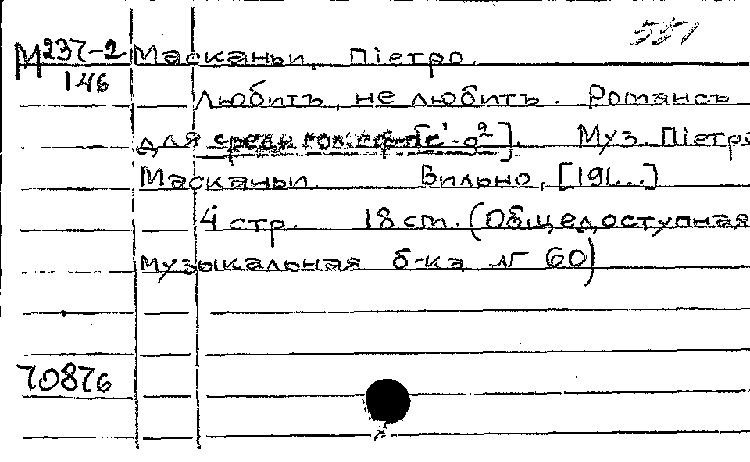 551
М 237-2 Масканьи, Пiетро.
146
Любитъ, не любитъ. Романсъ
для средн. голоса [c'-g²]. Муз. Пiетро
Масканьи. Вильно, [191...]
4 стр. 18 cm. (Общедоступная
музыкальная б-ка № 60)
70876